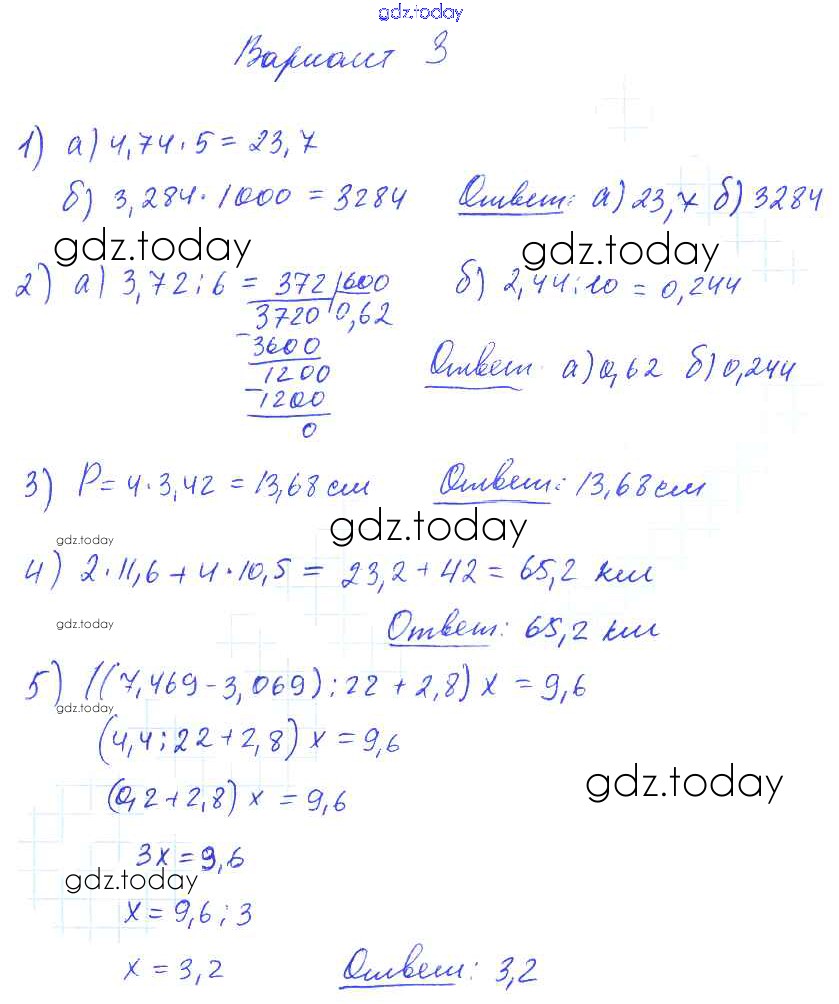 gdz.today
Вариант 3
1) а) 4,74 · 5 = 23,7
б) 3,284 · 1000 = 3284 Ответ: а) 23,7 б) 3284
gdz.today gdz.today
2) а) 3,72 : 6 = 372 | 600 б) 2,44 : 10 = 0,244
3720 | 0,62
- 3600
1200 Ответ а) 0,62 б) 0,244
- 1200
0
3) P = 4 · 3,42 = 13,68 см Ответ: 13,68 см
gdz.today
gdz.today
4) 2 · 11,6 + 4 · 10,5 = 23,2 + 42 = 65,2 км
gdz.today Ответ: 65,2 км
5) ((7,469 - 3,069) : 22 + 2,8) x = 9,6
gdz.today
(4,4 : 22 + 2,8) x = 9,6
(0,2 + 2,8) x = 9,6
gdz.today
3x = 9,6
gdz.today
x = 9,6 : 3
x = 3,2 Ответ: 3,2